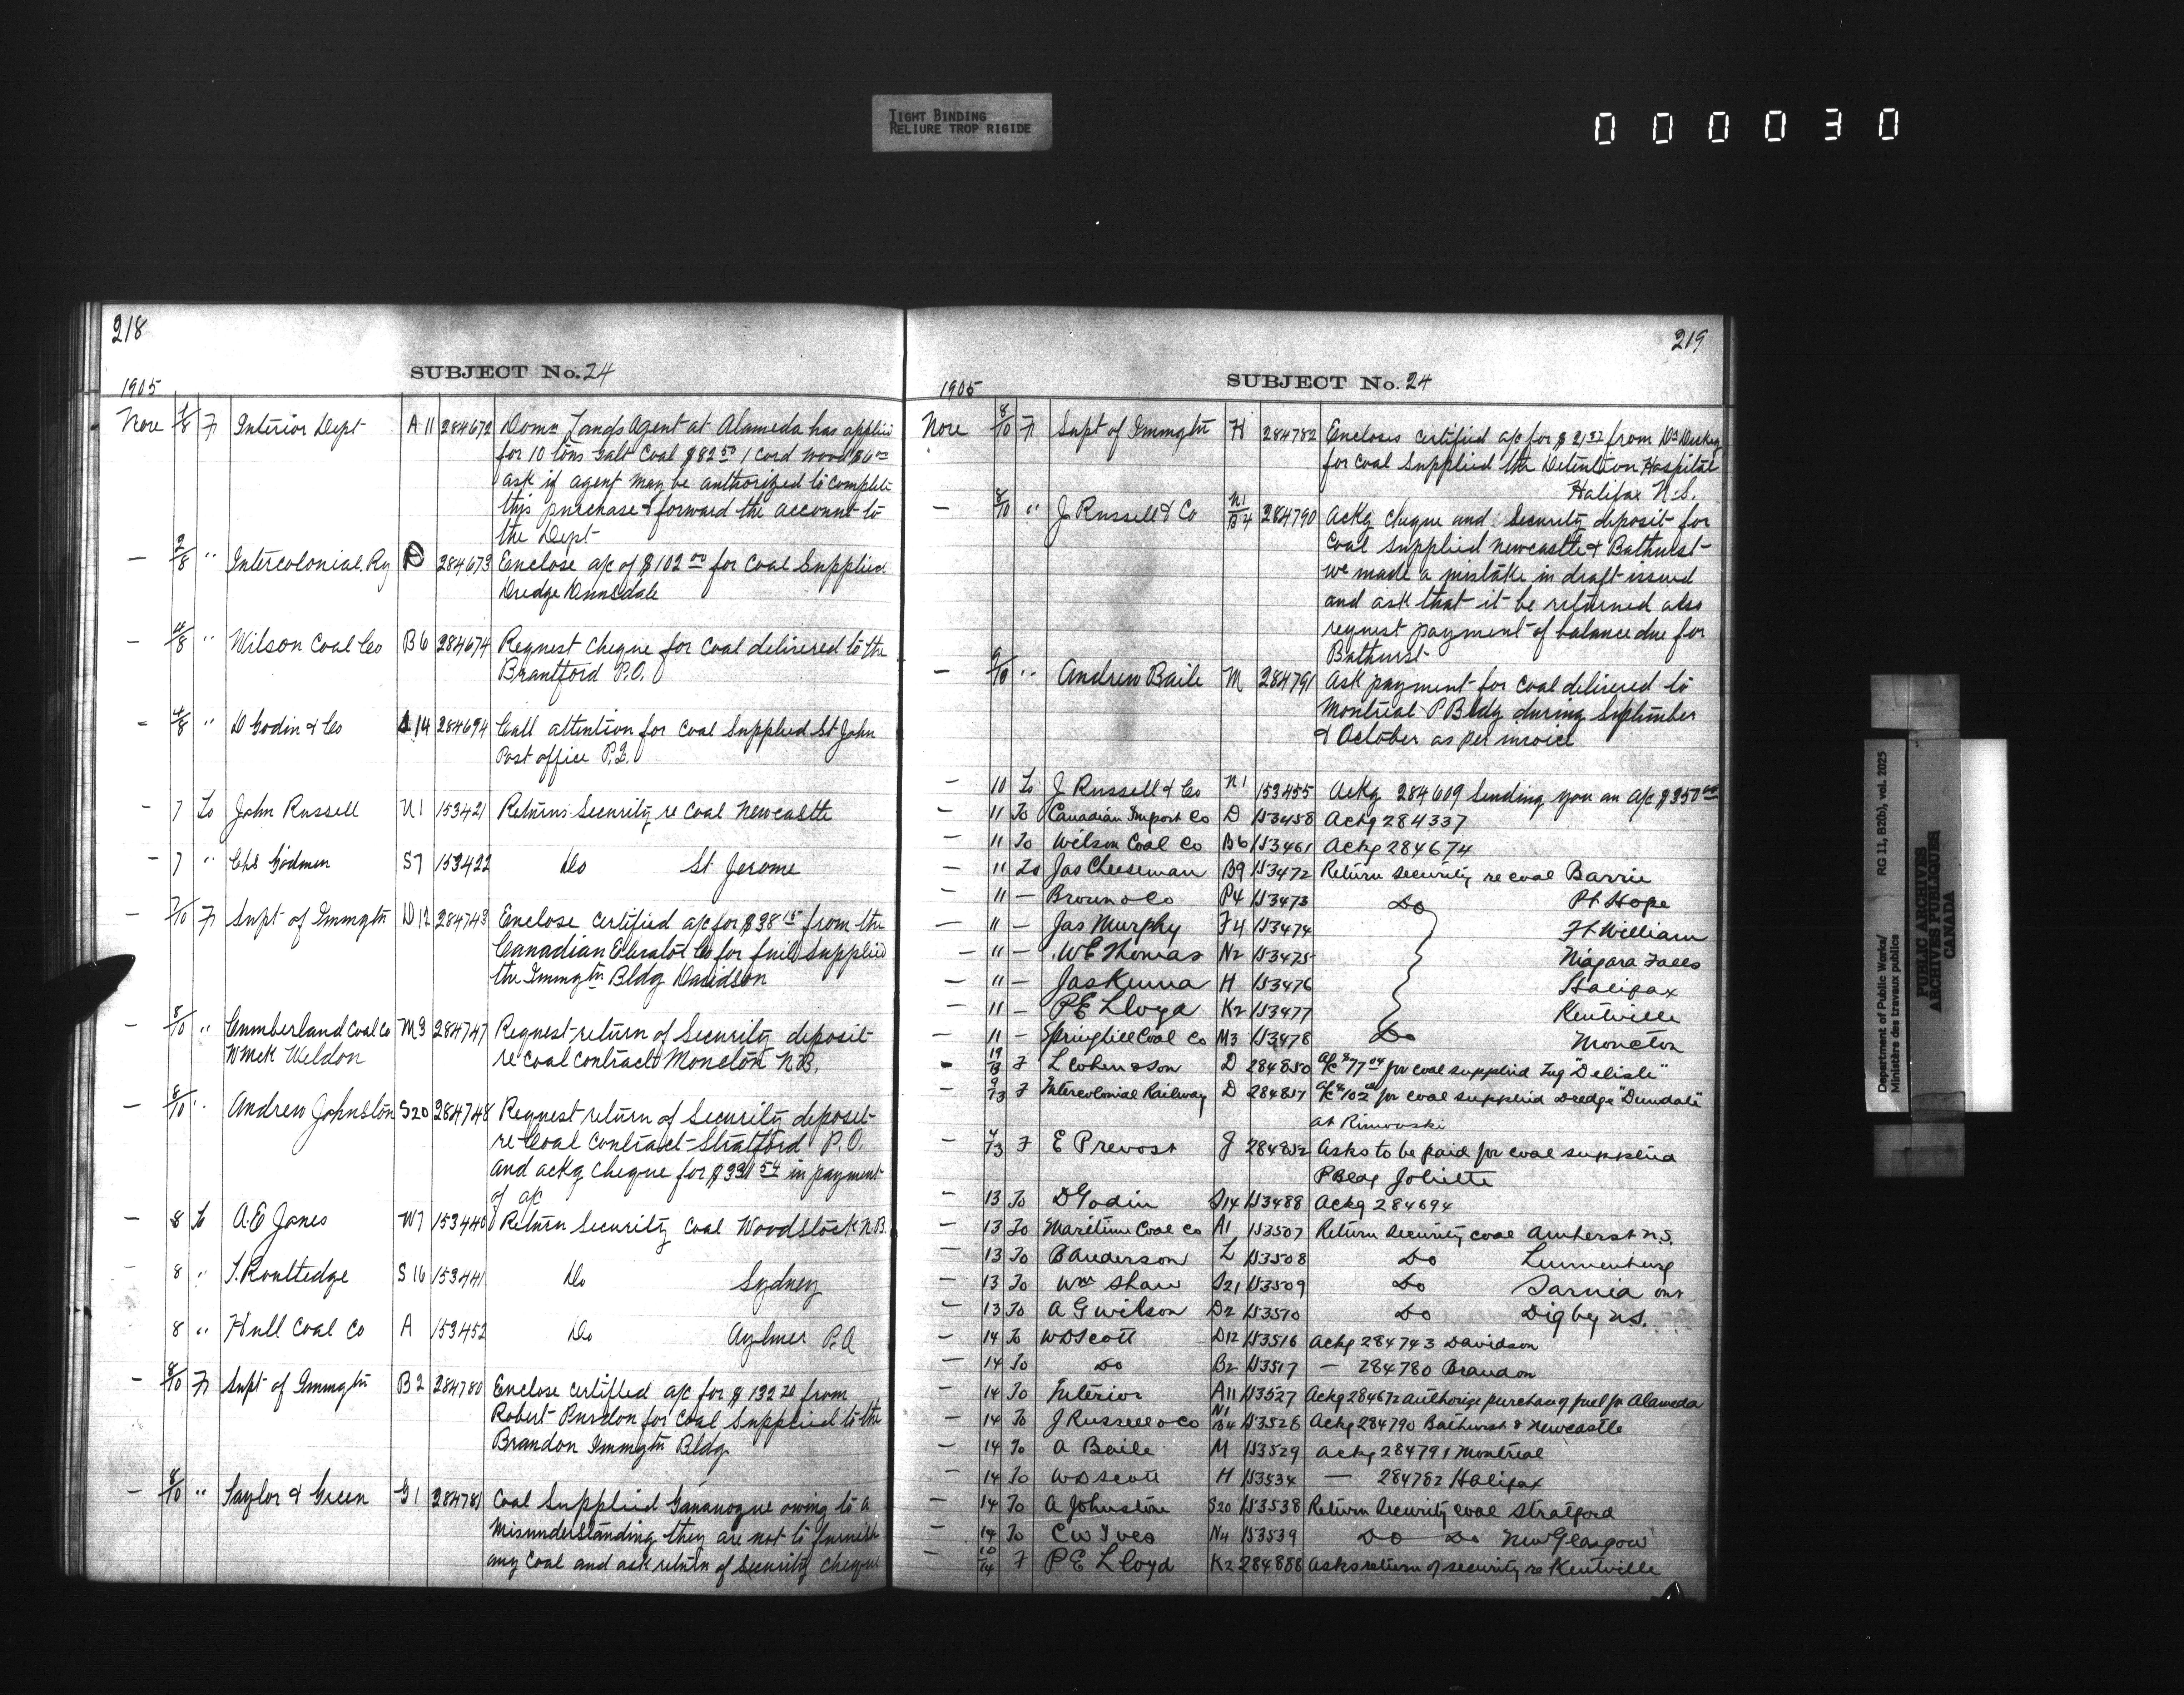 TIGHT BINDING
RELIURE TROP RIGIDE
000030
218
SUBJECT No. 24
1905
Nove 1/8 F Interior Dept A11 284672 Domn Lands Agent at Alameda has applied
for 10 tons Galt Coal $82 50 1 cord wood $6 00
ask if agent may be authorized to complete
this purchase & forward the account to
the Dept
— 2/8 " Intercolonial Ry D 284673 Enclose a/c of $102 00 for Coal Supplied
Dredge
— 4/8 " Wilson Coal Co B6 284674 Request cheque for Coal delivered to the
Brantford P.O.
— 4/8 " D Godin & Co 14 284694 Call attention for Coal Supplied St John
Post office P.Q.
— 7 To John Russell N1 153421 Returns Security re Coal Newcastle
— 7 " Chs Godmer S7 153422 Do St Jerome
— 7/10 F Supt of Immgtn D12 284743 Enclose Certified a/c for $38 15 from the
Canadian Elevator Co for fuel Supplied
the Immgtn Bldg Davidson
— 8/10 " Cumberland Coal Co M3 284747 Request return of Security deposit
Wmck Weldon re coal contract Moncton N.B.
— 8/10 " Andrew Johnston S20 284748 Request return of Security deposit
re Coal Contract Stratford P.O.
and ackg Cheque for $331 54 in payment
of a/c
— 8 To A.E Jones W7 153440 Return Security Coal Woodstock N.B.
— 8 " T. Routledge S16 153441 Do Sydney
8 " Hull Coal Co A 153452 Do Aylmer P.Q
— 8/10 F Supt of Immgtn B2 284780 Enclose Certified a/c for $132 20 from
Robert Purdon for Coal Supplied to the
Brandon Immgtn Bldg.
— 8/10 " Taylor & Green G1 284781 Coal Supplied Gananoque owing to a
misunderstanding they are not to furnish
any Coal and ask return of Security cheque
219
SUBJECT No. 24
1905
Nove 8/10 F Supt of Immgtn H 284782 Encloses certified a/c for $21 37 from
for Coal Supplied the Detention Hospital
Halifax N.S.
— 8/10 " J Russell & Co N1/B4 284790 Ackg cheque and Security deposit for
Coal Supplied Newcastle & Bathurst
we made a mistake in draft issued
and ask that it be returned also
request payment of balance due for
Bathurst
— 9/10 " Andrew Baile M 284791 Ask payment for Coal delivered to
Montreal P Bldg during September
& October as per invoice
— 10 To J Russell & Co N1 153455 Ackg 284609 Sending you an a/c $350 00
— 11 To Canadian Import Co D 153458 Ackg 284337
— 11 To Wilson Coal Co B6 153461 Ackg 284674
— 11 To Jas Cheeseman B9 153472 Return Security re coal Barrie
11 — Brown & Co P4 153473 Do Pt Hope
— 11 — Jas Murphy F4 153474 Ft William
— 11 — W E Thomas N2 153475 Niagara Falls
— 11 — Jas Kenna H 153476 Halifax
— 11 — P E Lloyd K2 153477 Kentville
— 11 — Springhill Coal Co M3 153478 Do Moncton
— F L Cohen & Son D 284850 a/c $77 04 for coal supplied Tug "Delisle"
— 9/13 F Intercolonial Railway D 284851 a/c $102 00 for coal supplied Dredge "Dundale"
at Rimouski
— F E Prevost J 284852 Asks to be paid for coal supplied
P Bldg Joliette
— 13 To D Godin S14 153488 Ackg 284694
— 13 To Maritime Coal Co A1 153507 Return Security coal Amherst N.S.
— 13 To B Anderson L 153508 Do Lunenburg
— 13 To Wm Shaw S21 153509 Do Sarnia Ont
— 13 To A G Wilson D2 153510 Do Digby N.S.
— 14 To W D Scott D12 153516 Ackg 284743 Davidson
— 14 To Do B2 153517 — 284780 Brandon
— 14 To Interior A11 153527 Ackg 284672 authorize purchase of fuel for Alameda
— 14 To J Russell & Co N1 B4 153528 Ackg 284790 Bathurst & Newcastle
— 14 To A Baile M 153529 Ackg 284791 Montreal
— 14 To W D Scott H 153534 — 284782 Halifax
— 14 To A Johnston S20 153538 Return Security coal Stratford
— 14 To C W Ives N4 153539 Do Do New Glasgow
— 10/14 F P E Lloyd K2 284888 Asks return of security re Kentville
Department of Public Works/ RG 11, B2(b), vol. 2025
Ministère des travaux publics
PUBLIC ARCHIVES
ARCHIVES PUBLIQUES
CANADA